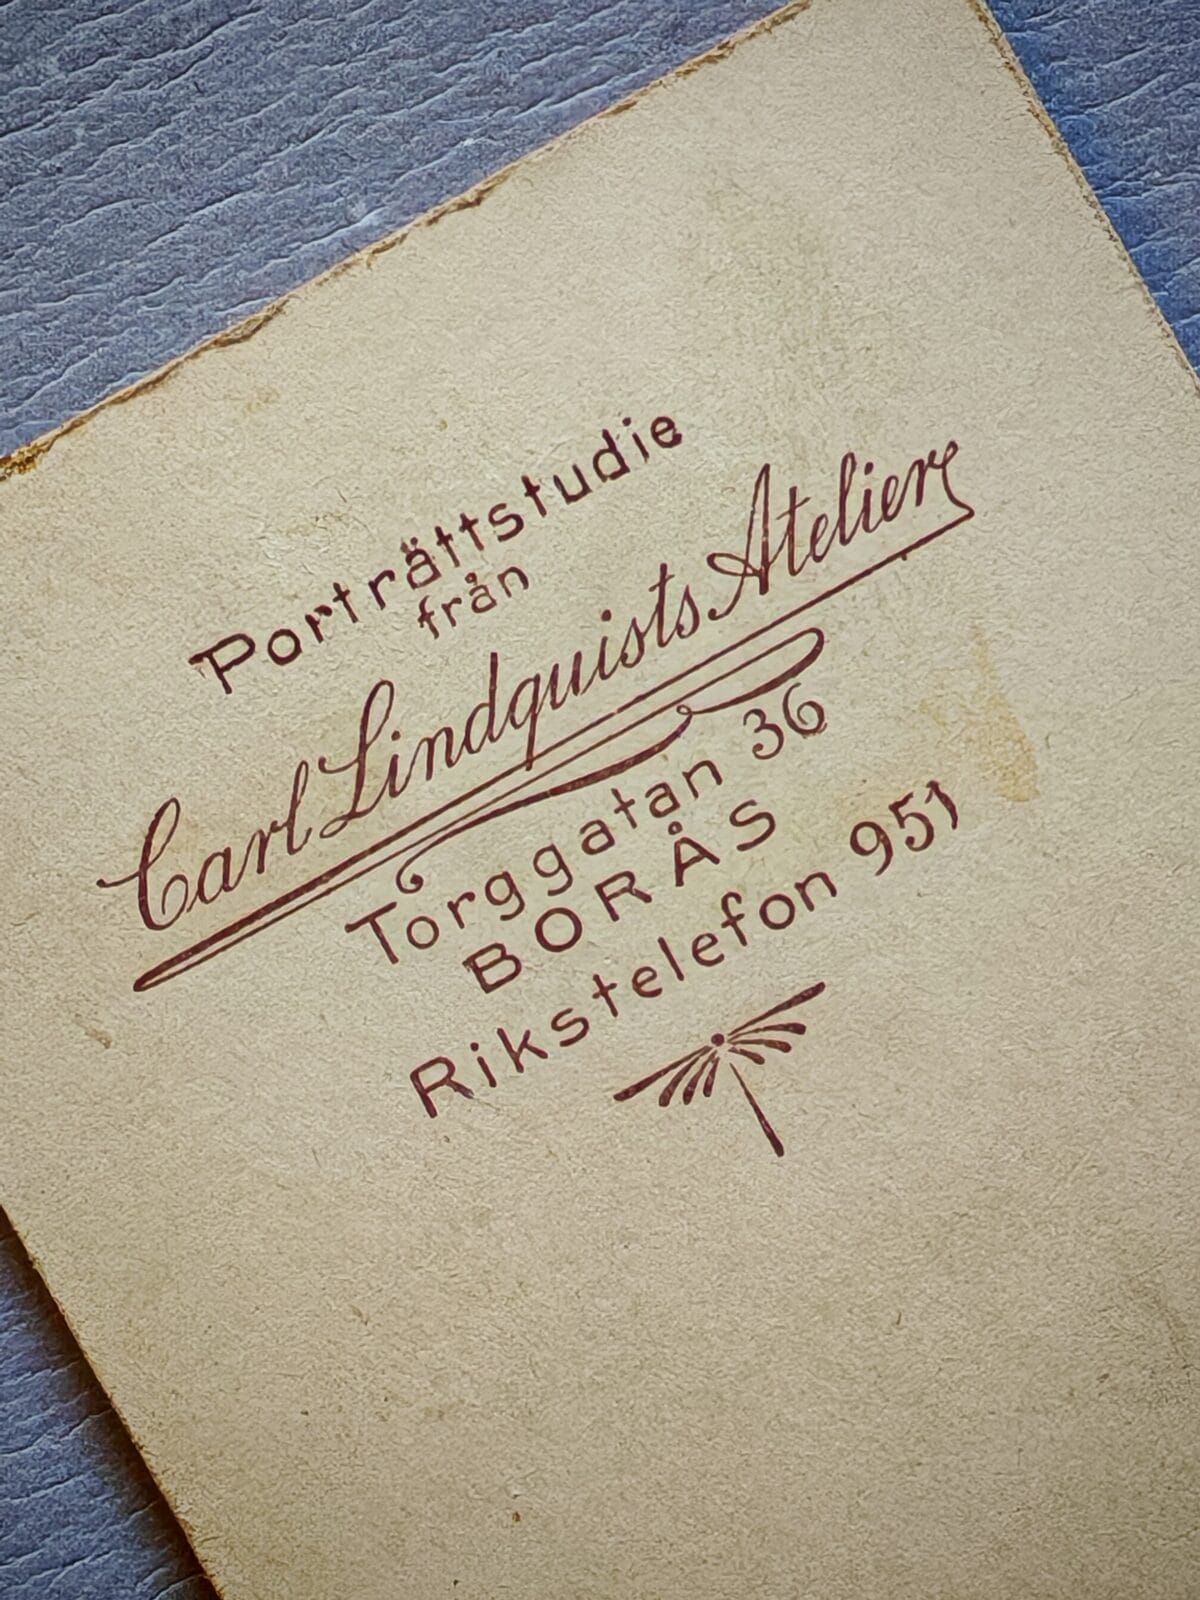 Porträttstudie
från
Carl Lindquists Atelier
Torggatan 36
BORÅS
Rikstelefon 951